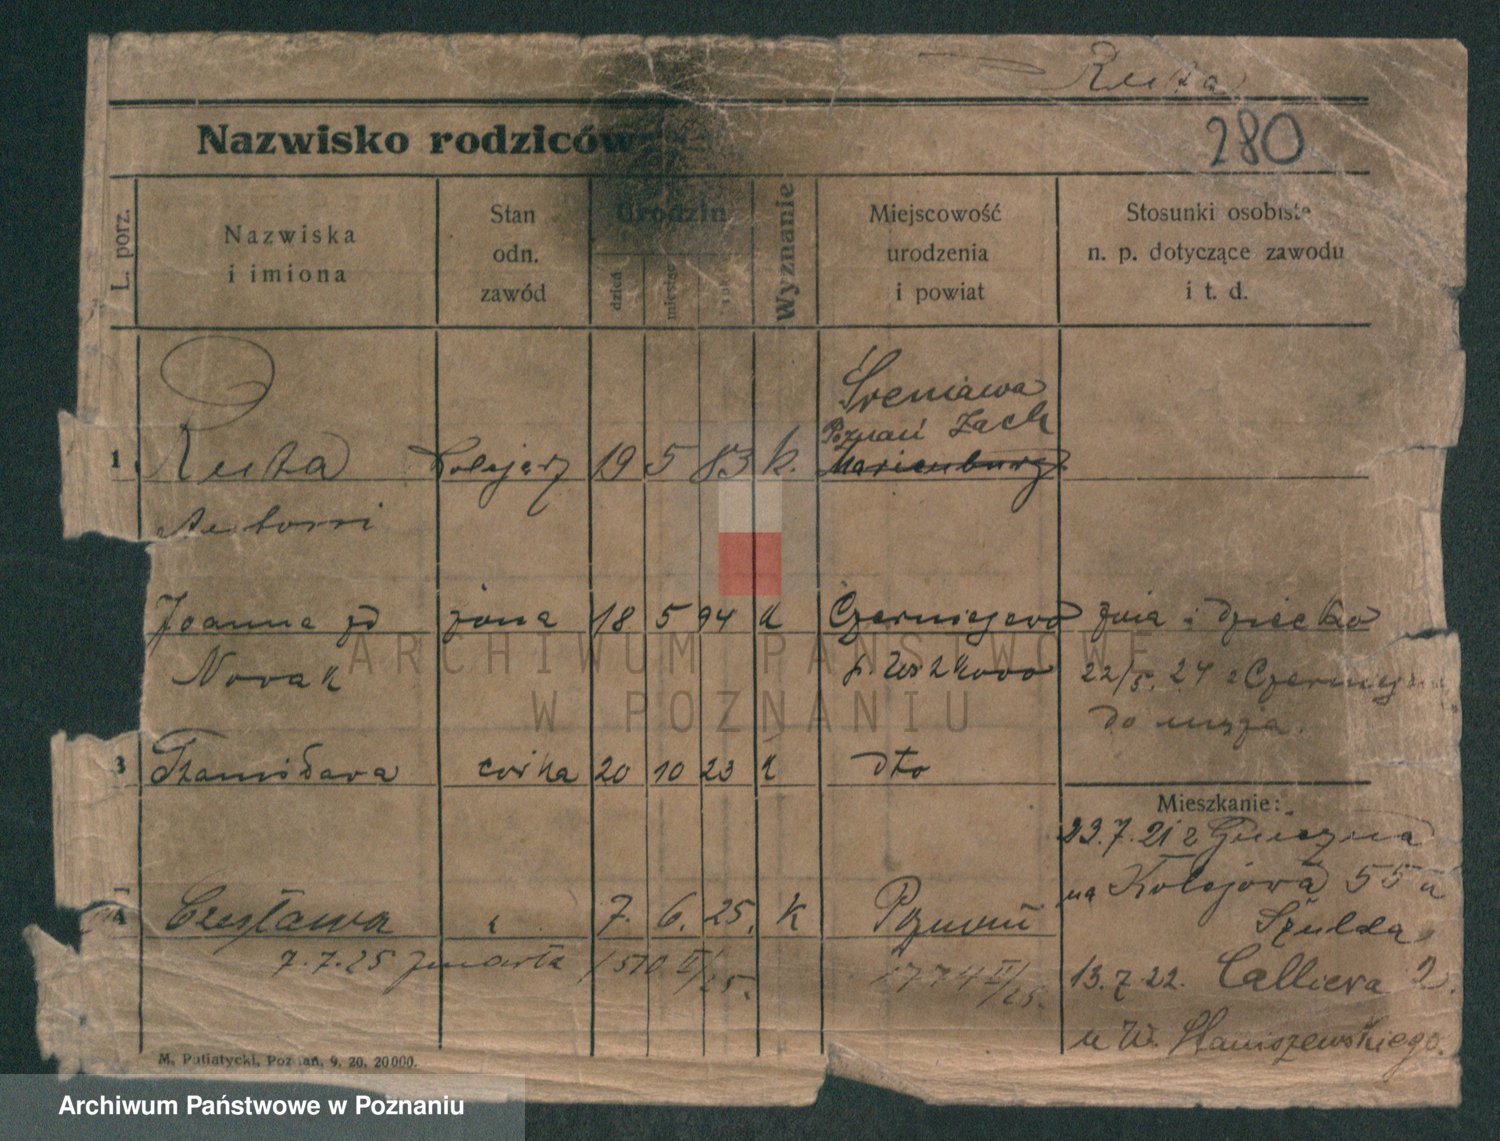 Ruta
280
Nazwisko rodziców
L. porz.
Nazwiska
i imiona
Stan
odn.
zawód
Urodzin
dzień
miesiąc
rok
Wyznanie
Miejscowość
urodzenia
i powiat
Stosunki osobiste
n. p. dotyczące zawodu
i t. d.
Śreniawa
Poznań Zach
1 Ruta kolejarz 19 5 83 k. Marienburg
Antoni
Joanna zd żona 18 5 94 k Czerniejewo żona i dziecko
Nowak p. Witkowo 22/5. 24 z Czerniej
do męża.
3 Stanisława córka 20 10 23 k dto
Mieszkanie:
23.7.21 z Gniezna
na Kolejowa 55 u
Szulda
4 Czesława " 7. 6. 25. k Poznań
7.7.25 zmarła 1510 II/25. 1774 II/25.
13.7.22. Calliera 2.
u W. Staniszewskiego.
M. Putiatycki, Poznań, 9. 20. 20000.
ARCHIWUM PAŃSTWOWE
W POZNANIU
Archiwum Państwowe w Poznaniu